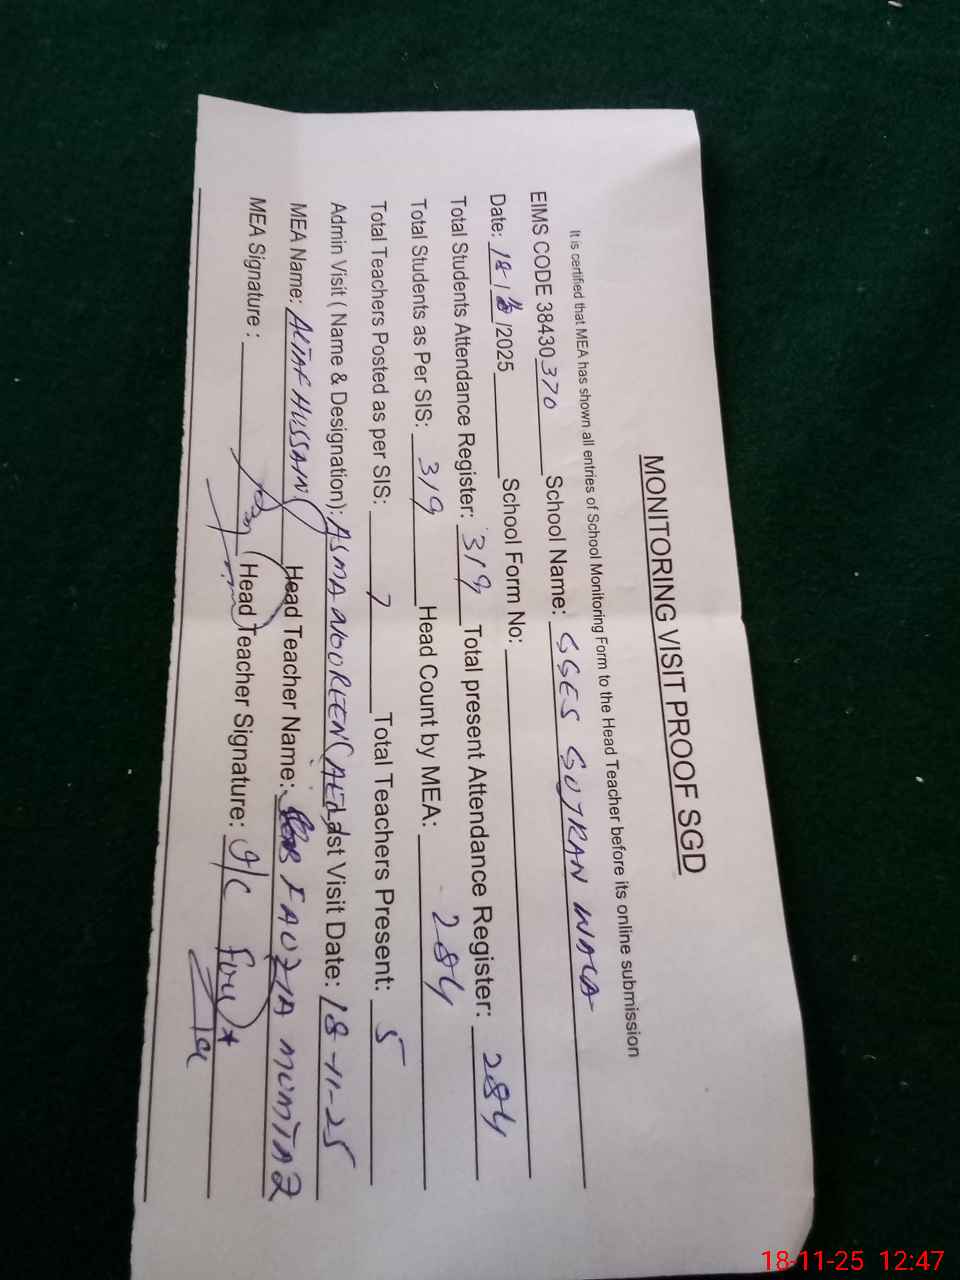 MONITORING VISIT PROOF SGD
It is certified that MEA has shown all entries of School Monitoring Form to the Head Teacher before its online submission
EIMS CODE 38430 370 School Name: GGES GUJRAN WALA
Date: 18-11/2025 School Form No:
Total Students Attendance Register: 319 Total present Attendance Register: 284
Total Students as Per SIS: 319 Head Count by MEA: 284
Total Teachers Posted as per SIS: 7 Total Teachers Present: 5
Admin Visit ( Name & Designation): ASMA NOOREEN (AEO) Last Visit Date: 18-11-25
MEA Name: ALTAF HUSSAIN Head Teacher Name: FAUZIA MUMTAZ
MEA Signature : Head Teacher Signature: I/C
18-11-25 12:47